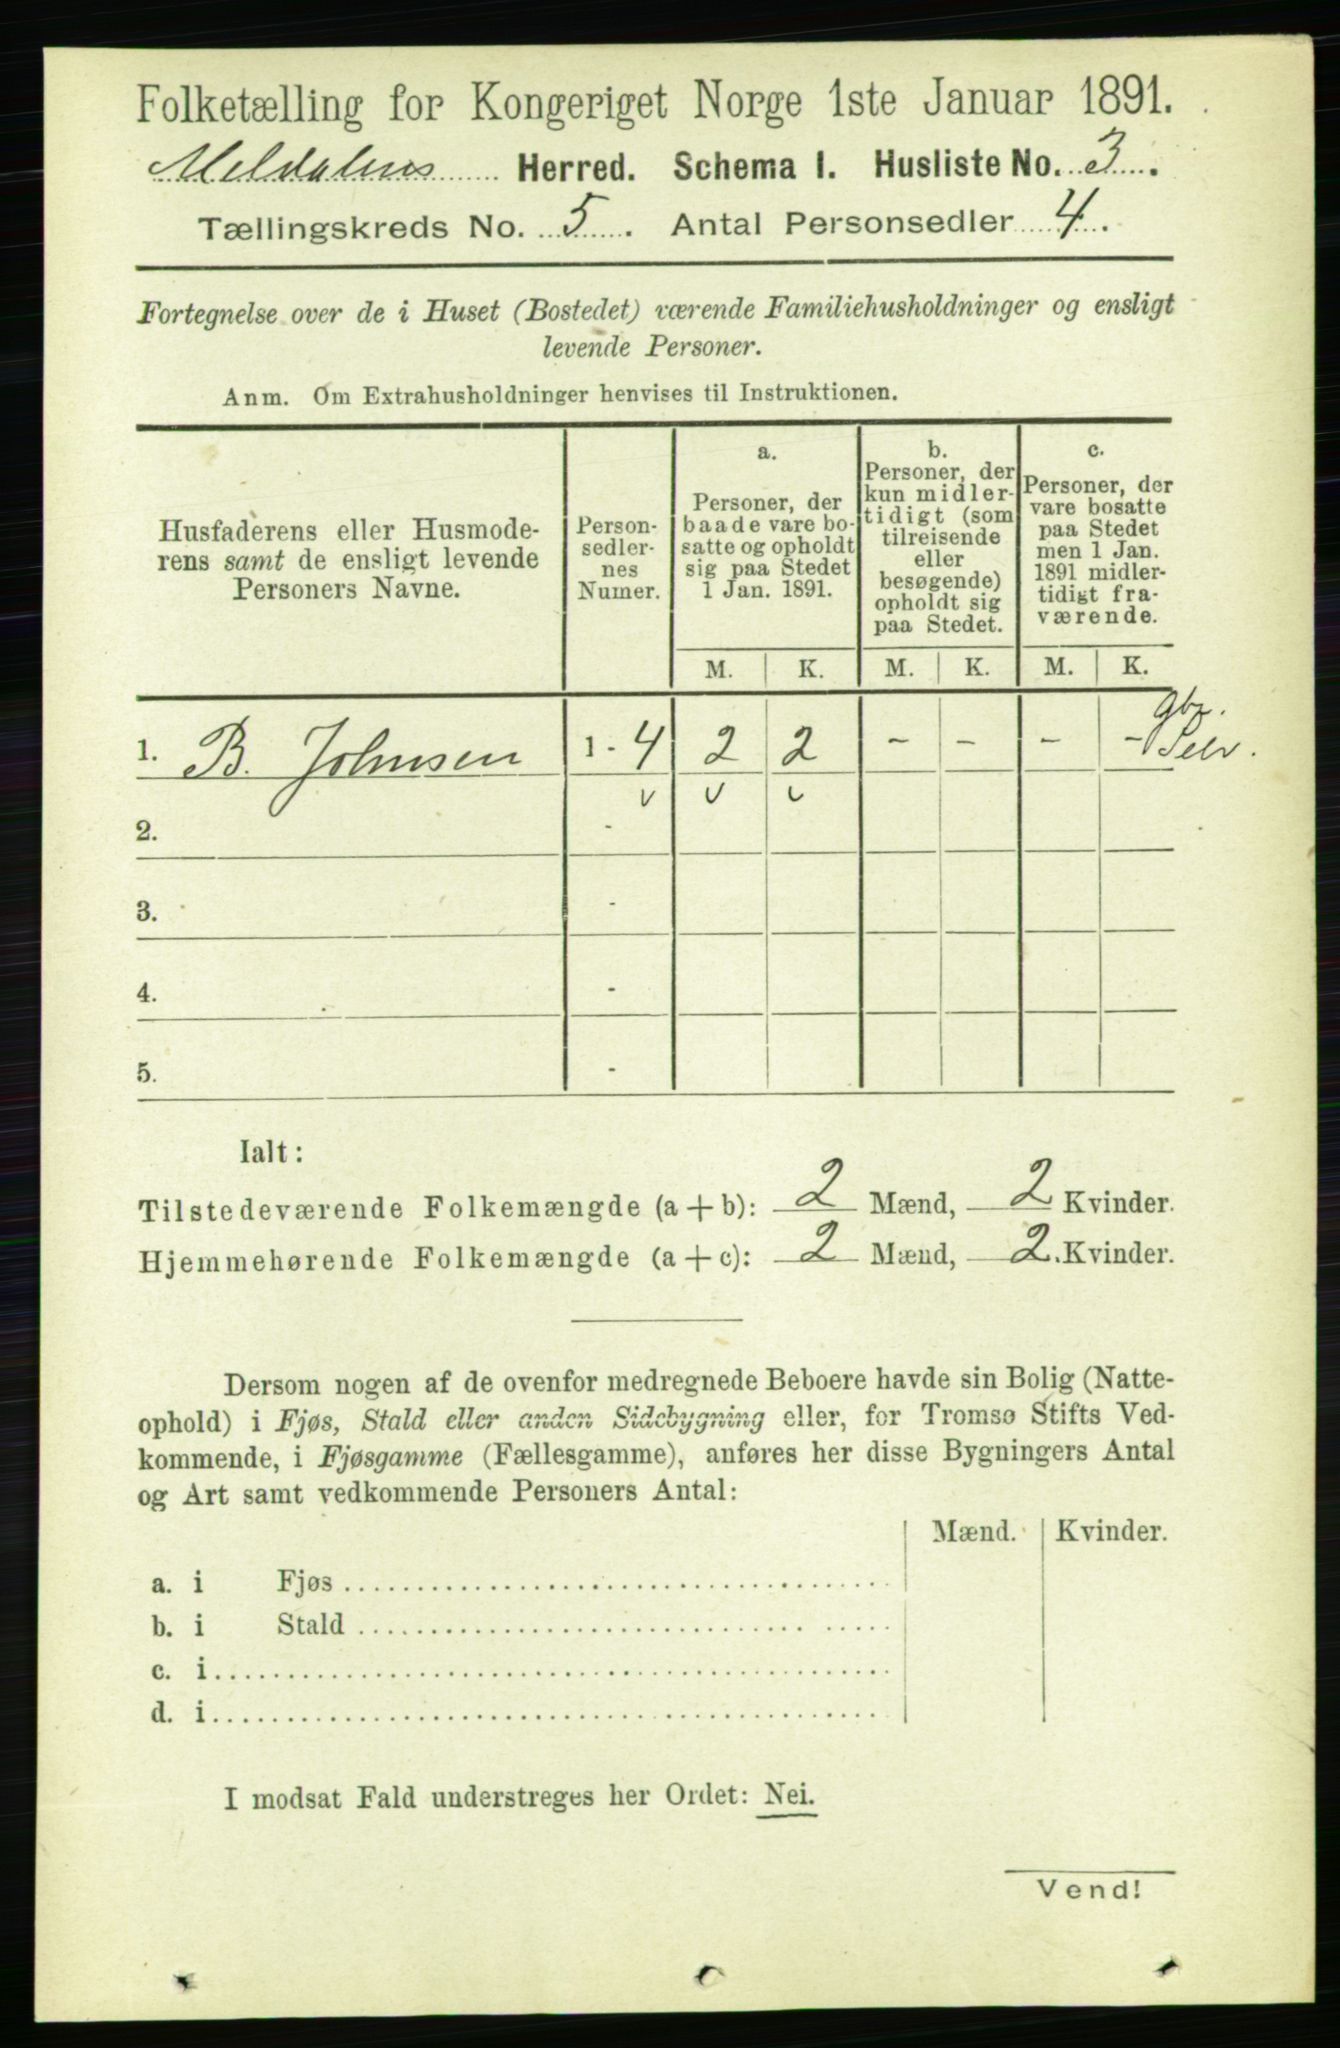 Folketælling for Kongeriget Norge 1ste Januar 1891.
Meldalens Herred. Schema I. Husliste No. 3.
Tællingskreds No. 5. Antal Personsedler 4.
Fortegnelse over de i Huset (Bostedet) værende Familiehusholdninger og ensligt
levende Personer.
Anm. Om Extrahusholdninger henvises til Instruktionen.
Husfaderens eller Husmode-
rens samt de ensligt levende
Personers Navne.
Person-
sedler-
nes
Numer.
a.
Personer, der
baade vare bo-
satte og opholdt
sig paa Stedet
1 Jan. 1891.
b.
Personer, der
kun midler-
tidigt (som
tilreisende
eller
besøgende)
opholdt sig
paa Stedet.
c.
Personer, der
vare bosatte
paa Stedet
men 1 Jan.
1891 midler-
tidigt fra-
værende.
M. K. M. K. M. K.
Gbr.
1. B. Johnsen 1 - 4 2 2 - - - - Selv.
v v v
2. -
3. -
4. -
5. -
Ialt:
Tilstedeværende Folkemængde (a + b): 2 Mænd, 2 Kvinder.
Hjemmehørende Folkemængde (a + c): 2 Mænd, 2. Kvinder.
Dersom nogen af de ovenfor medregnede Beboere havde sin Bolig (Natte-
ophold) i Fjøs, Stald eller anden Sidebygning eller, for Tromsø Stifts Ved-
kommende, i Fjøsgamme (Fællesgamme), anføres her disse Bygningers Antal
og Art samt vedkommende Personers Antal:
Mænd. Kvinder.
a. i Fjøs
b. i Stald
c. i
d. i
I modsat Fald understreges her Ordet: Nei.
Vend!